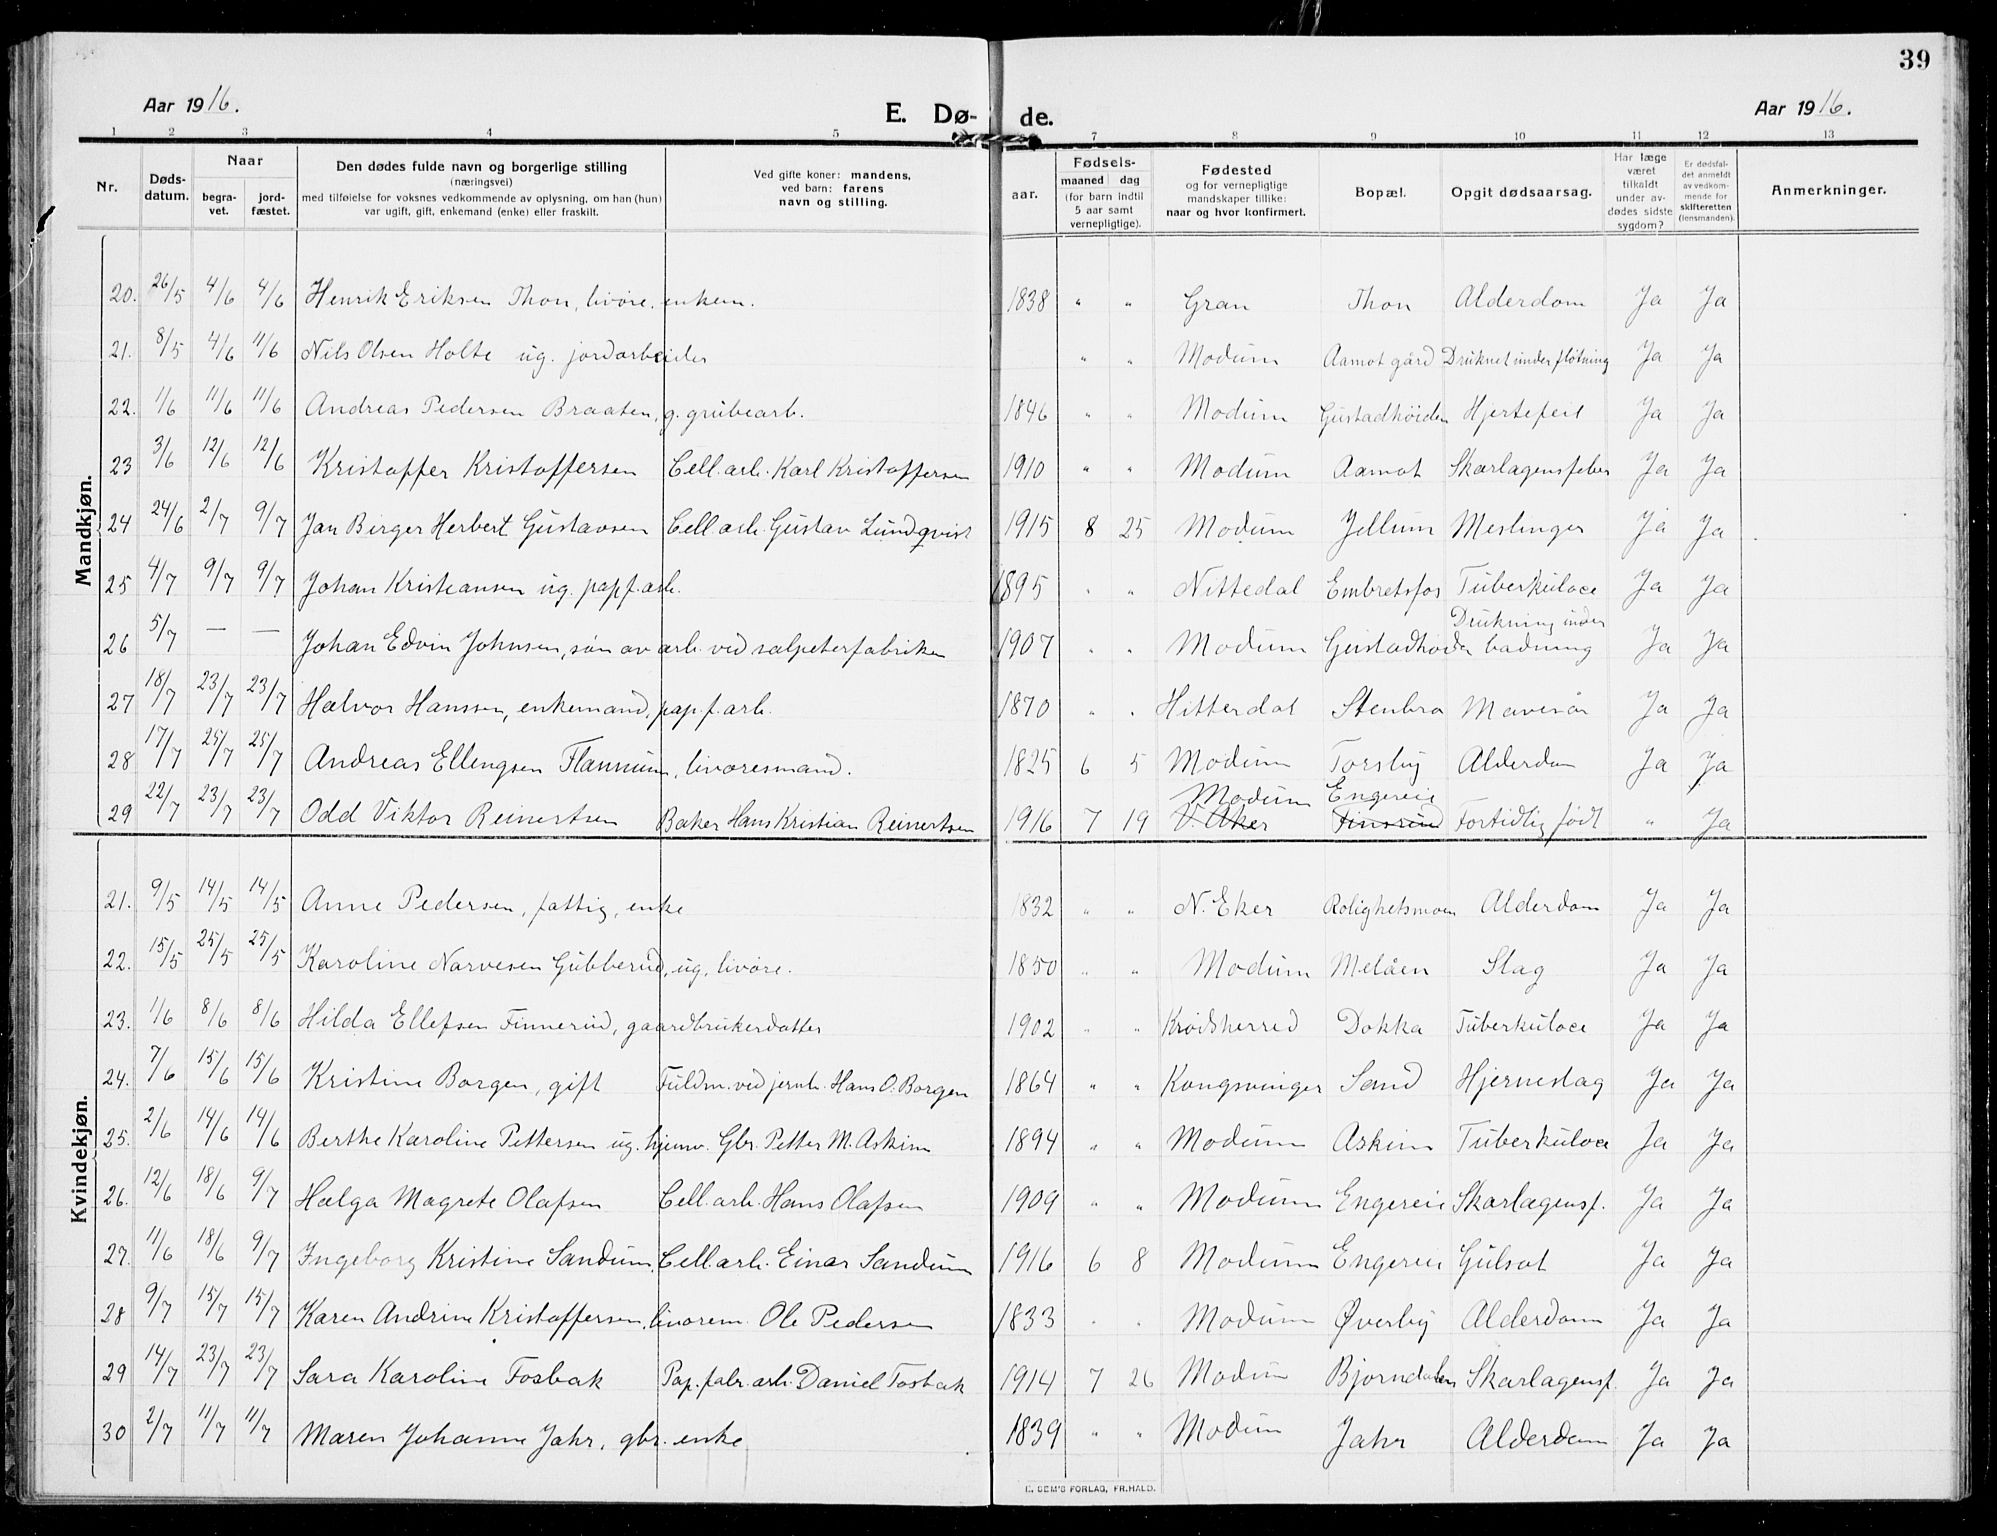 39
Aar 1916. E. Dø- de. Aar 1916.
1 2 3 4 5 7 8 9 10 11 12 13
Nr. Døds-datum. Naar begra-vet. jord-fæstet. Den dødes fulde navn og borgerlige stilling (næringsvei) med tilføielse for voksnes vedkommende av oplysning, om han (hun) var ugift, gift, enkemand (enke) eller fraskilt. Ved gifte koner: mandens, ved barn: farens navn og stilling. aar. Fødsels- maaned dag (for barn indtil 5 aar samt vernepligtige). Fødested og for vernepligtige mandskaper tillike: naar og hvor konfirmert. Bopæl. Opgit dødsaarsag. Har læge været tilkaldt under av-dødes sidste sygdom? Er dødsfal-det anmeldt av vedkom-mende for skifteretten (lensmanden). Anmerkninger.
Mandkjøn.
20. 26/5 4/6 4/6 Henrik Eriksen Thon, livøre. enkem. 1838 " " Gran Thon Alderdom Ja Ja
21. 8/5 4/6 11/6 Nils Olsen Holte ug. jordarbeider " " Modum Aamot gård Druknet under fløtning Ja Ja
22. 1/6 11/6 11/6 Andreas Pedersen Braaten, g. grubearb. 1846 " " Modum Gustadhöiden Hjertefeil Ja Ja
23 3/6 12/6 12/6 Kristoffer Kristoffersen Cell.arb. Karl Kristoffersen 1910 " " Modum Aamot Skarlagensfeber Ja Ja
24 24/6 2/7 9/7 Jan Birger Herbert Gustavsen Cell arb. Gustav Lundqvist 1915 8 25 Modum Jellum Meslinger Ja Ja
25 4/7 9/7 9/7 Johan Kristiansen ug. pap.f.arb. 1895 " " Nittedal Embretsfos Tuberkulose Ja Ja
26 5/7 — — Johan Edvin Johnsen, søn av arb. ved salpeterfabriken 1907 " " Modum Gustadhöiden Drukning under badning Ja Ja
27 18/7 23/7 23/7 Halvor Hanssen, enkemand, pap.f.arb. 1870 " " Hitterdal Stenbro Mavesår Ja Ja
28 17/7 25/7 25/7 Andreas Ellengsen Flannum, livøresmand. 1825 6 5 Modum Torsby Alderdom Ja Ja
29 22/7 23/7 23/7 Odd Viktor Reinertsen Baker Hans Kristian Reinertsen 1916 7 19 Modum V. Aker Engereie Finsrud Fortidlig født " Ja
Kvindekjøn.
21. 9/5 14/5 14/5 Anne Pedersen, fattig, enke 1832 " " N. Eker Rolighetsmoen Alderdom Ja Ja
22. 15/5 25/5 25/5 Karoline Narvesen Gubberud, ug, livøre. 1850 " " Modum Melåen Slag Ja Ja
23. 1/6 8/6 8/6 Hilda Ellefsen Finnerud, gaardbrukerdatter 1902 " " Krødsherred Dokka Tuberkulose Ja Ja
24. 7/6 15/6 15/6 Kristine Borgen, gift Fuldm. ved jernb. Hans O. Borgen 1864 " " Kongsvinger Sand Hjerneslag Ja Ja
25. 2/6 14/6 14/6 Berthe Karoline Pettersen ug. hjemv. Gbr. Petter M. Askim 1894 " " Modum Askim Tuberkulose Ja Ja
26. 12/6 18/6 9/7 Helga Magrete Olafsen Cell.arb. Hans Olafsen 1909 " " Modum Engereie Skarlagensf. Ja Ja
27. 11/6 18/6 9/7 Ingeborg Kristine Sandum, Cell.arb. Einar Sandum 1916 6 8 Modum Engereie Gulsot Ja Ja
28 9/7 15/7 15/7 Karen Andrine Kristoffersen, livørem. Ole Pedersen 1833 " " Modum Øverby Alderdom Ja Ja
29 14/7 23/7 23/7 Sara Karoline Fosbak Pap.fabr.arb. Daniel Fosbak 1914 7 26 Modum Bjørndalen Skarlagensf. Ja Ja
30 2/7 11/7 11/7 Maren Johanne Jahr, gbr. enke 1839 " " Modum Jahr Alderdom Ja Ja
E. SEM'S FORLAG, FR.HALD.